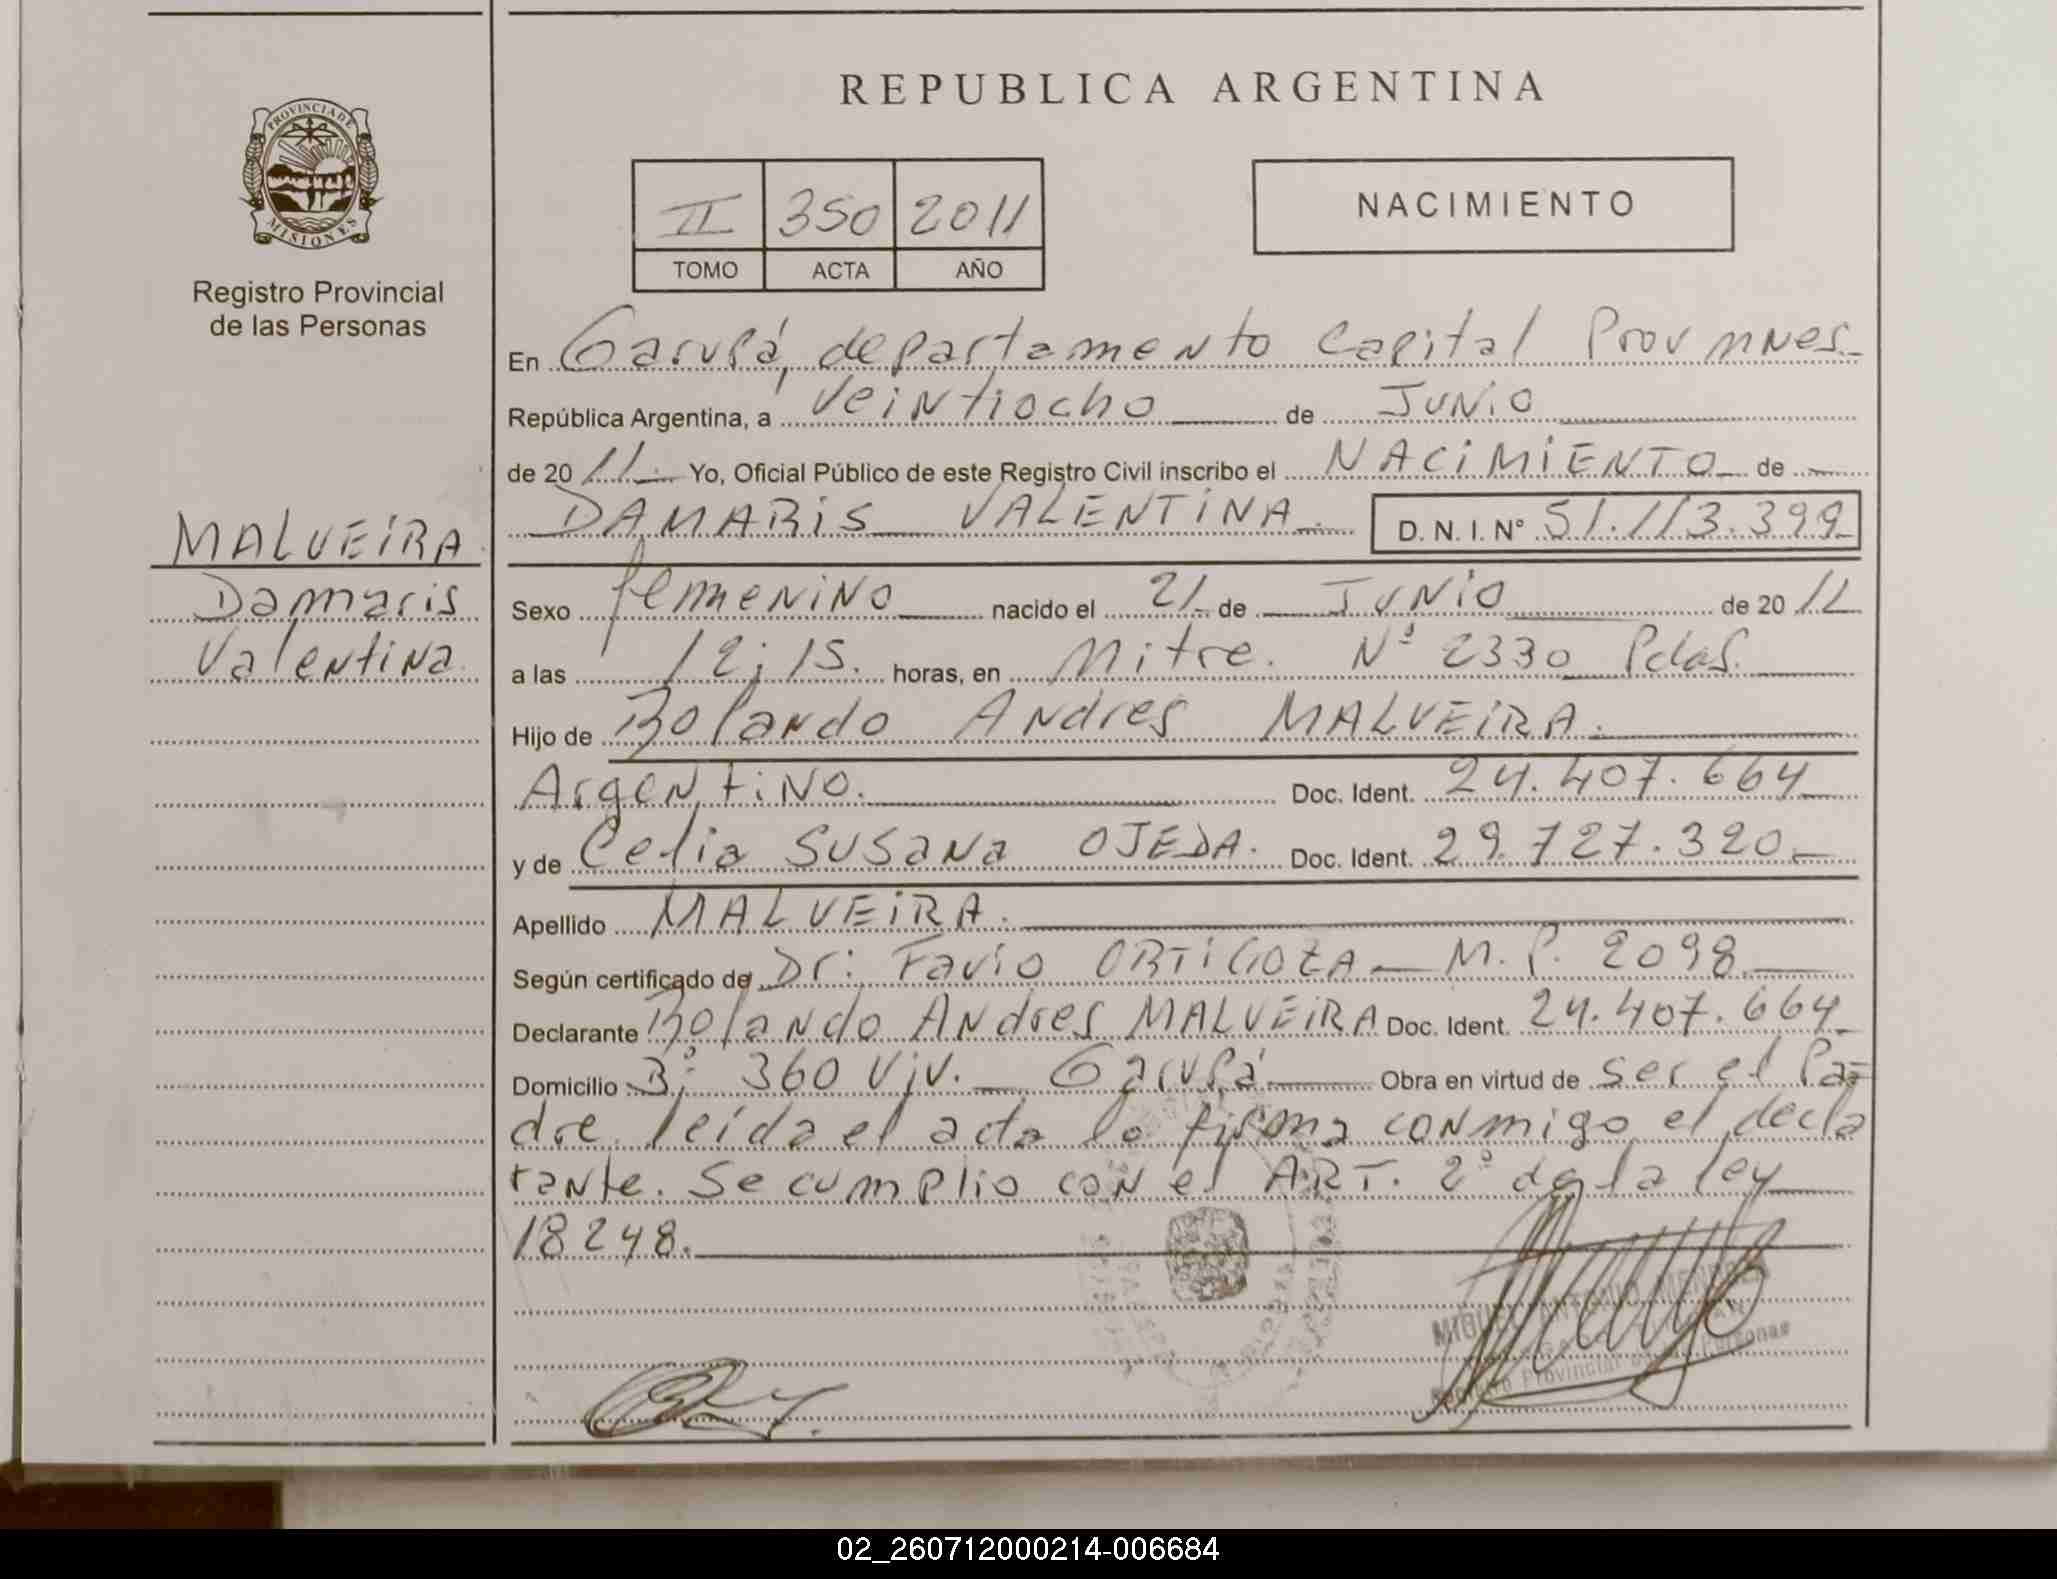 REPUBLICA ARGENTINA
PROVINCIA DE
MISIONES
Registro Provincial
de las Personas
II 350 2011
TOMO ACTA AÑO
NACIMIENTO
En Garupá, departamento Capital Prov mnes.
República Argentina, a veintiocho de JUNIO
de 20 11. Yo, Oficial Público de este Registro Civil inscribo el NACIMIENTO de
DAMARIS VALENTINA. D. N. I. N° 51.113.399
MALVEIRA
Damaris
Valentina.
Sexo femenino nacido el 21 de JUNIO de 20 11
a las 12; 15. horas, en Mitre. Nº 2330 Pdas.
Hijo de Rolando Andres MALVEIRA.
Argentino. Doc. Ident. 24.407.664
y de Celia SUSANA OJEDA. Doc. Ident. 29.727.320.
Apellido MALVEIRA.
Según certificado de Dr: Favio ORTIGOZA M.P. 2098
Declarante Rolando Andres MALVEIRA Doc. Ident. 24.407.664
Domicilio Bº 360 Viv. Garupá Obra en virtud de ser el Pa-
dre. leída el acta la firma conmigo el decla
rante. Se cumplio con el ART. 2º de la ley
18248.
MIGUEL ANTONIO
Registro Provincial de las Personas
02_260712000214-006684